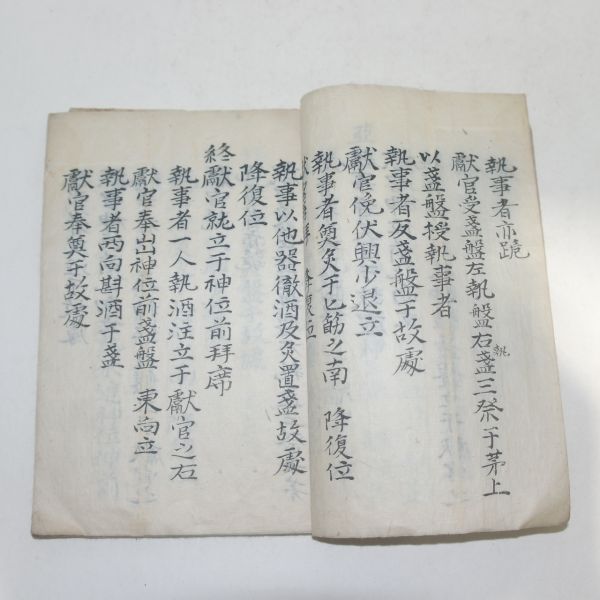 執事者亦跪
獻官受盞盤左執盤右執盞三祭于茅上
以盞盤授執事者
執事者反盞盤于故處
獻官俛伏興少退立
執事者奠炙于匕筯之南 降復位
降復位
執事以他器徹酒及炙置盞故處
降復位
終獻官就立于神位前拜席
執事者一人執酒注立于獻官之右
獻官奉出神位前盞盤 東向立
執事者西向斟酒于盞
獻官奉奠于故處